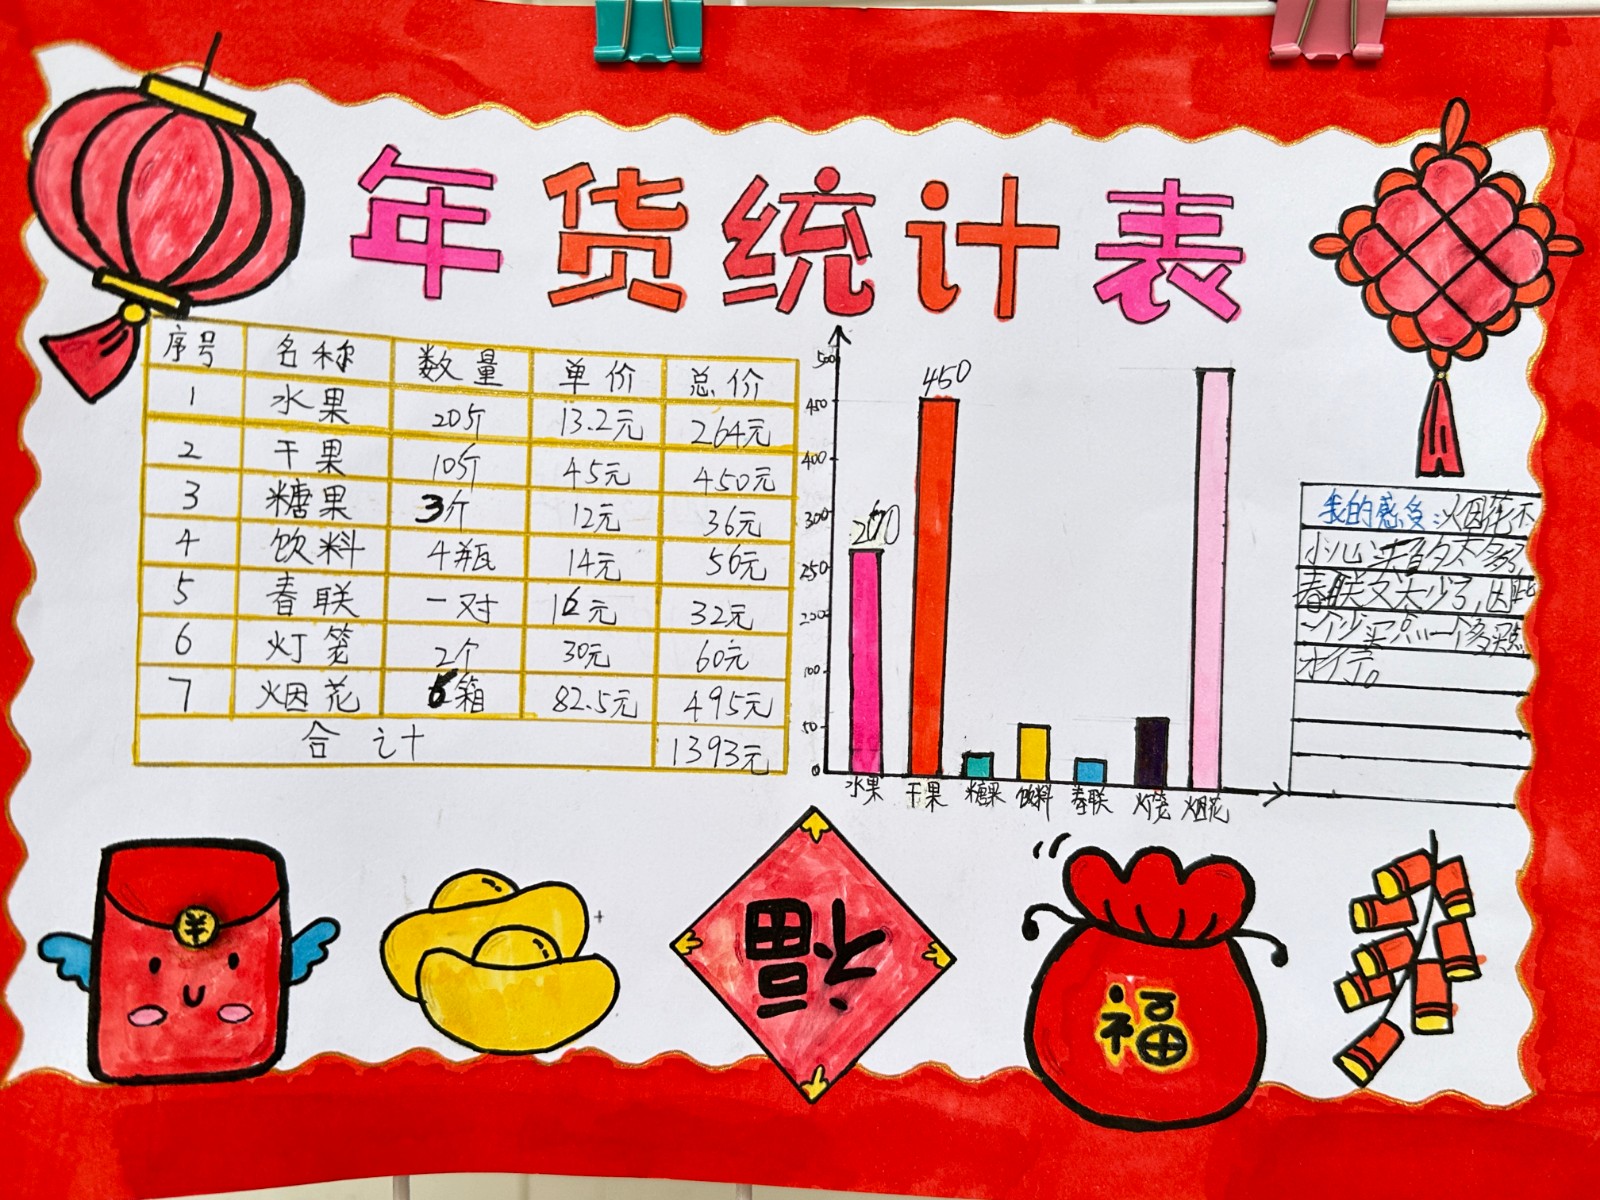 年货统计表
序号 名称 数量 单价 总价
1 水果 20斤 13.2元 264元
2 干果 10斤 45元 450元
3 糖果 3斤 12元 36元
4 饮料 4瓶 14元 56元
5 春联 一对 16元 32元
6 灯笼 2个 30元 60元
7 烟花 6箱 82.5元 495元
合计 1393元
500
450
400
300
250
200
100
50
0
450
水果 干果 糖果 饮料 春联 灯笼 烟花
我的感受:烟花不
春联又太少了,因此
一个少买点一个多买点
才行。
福
福